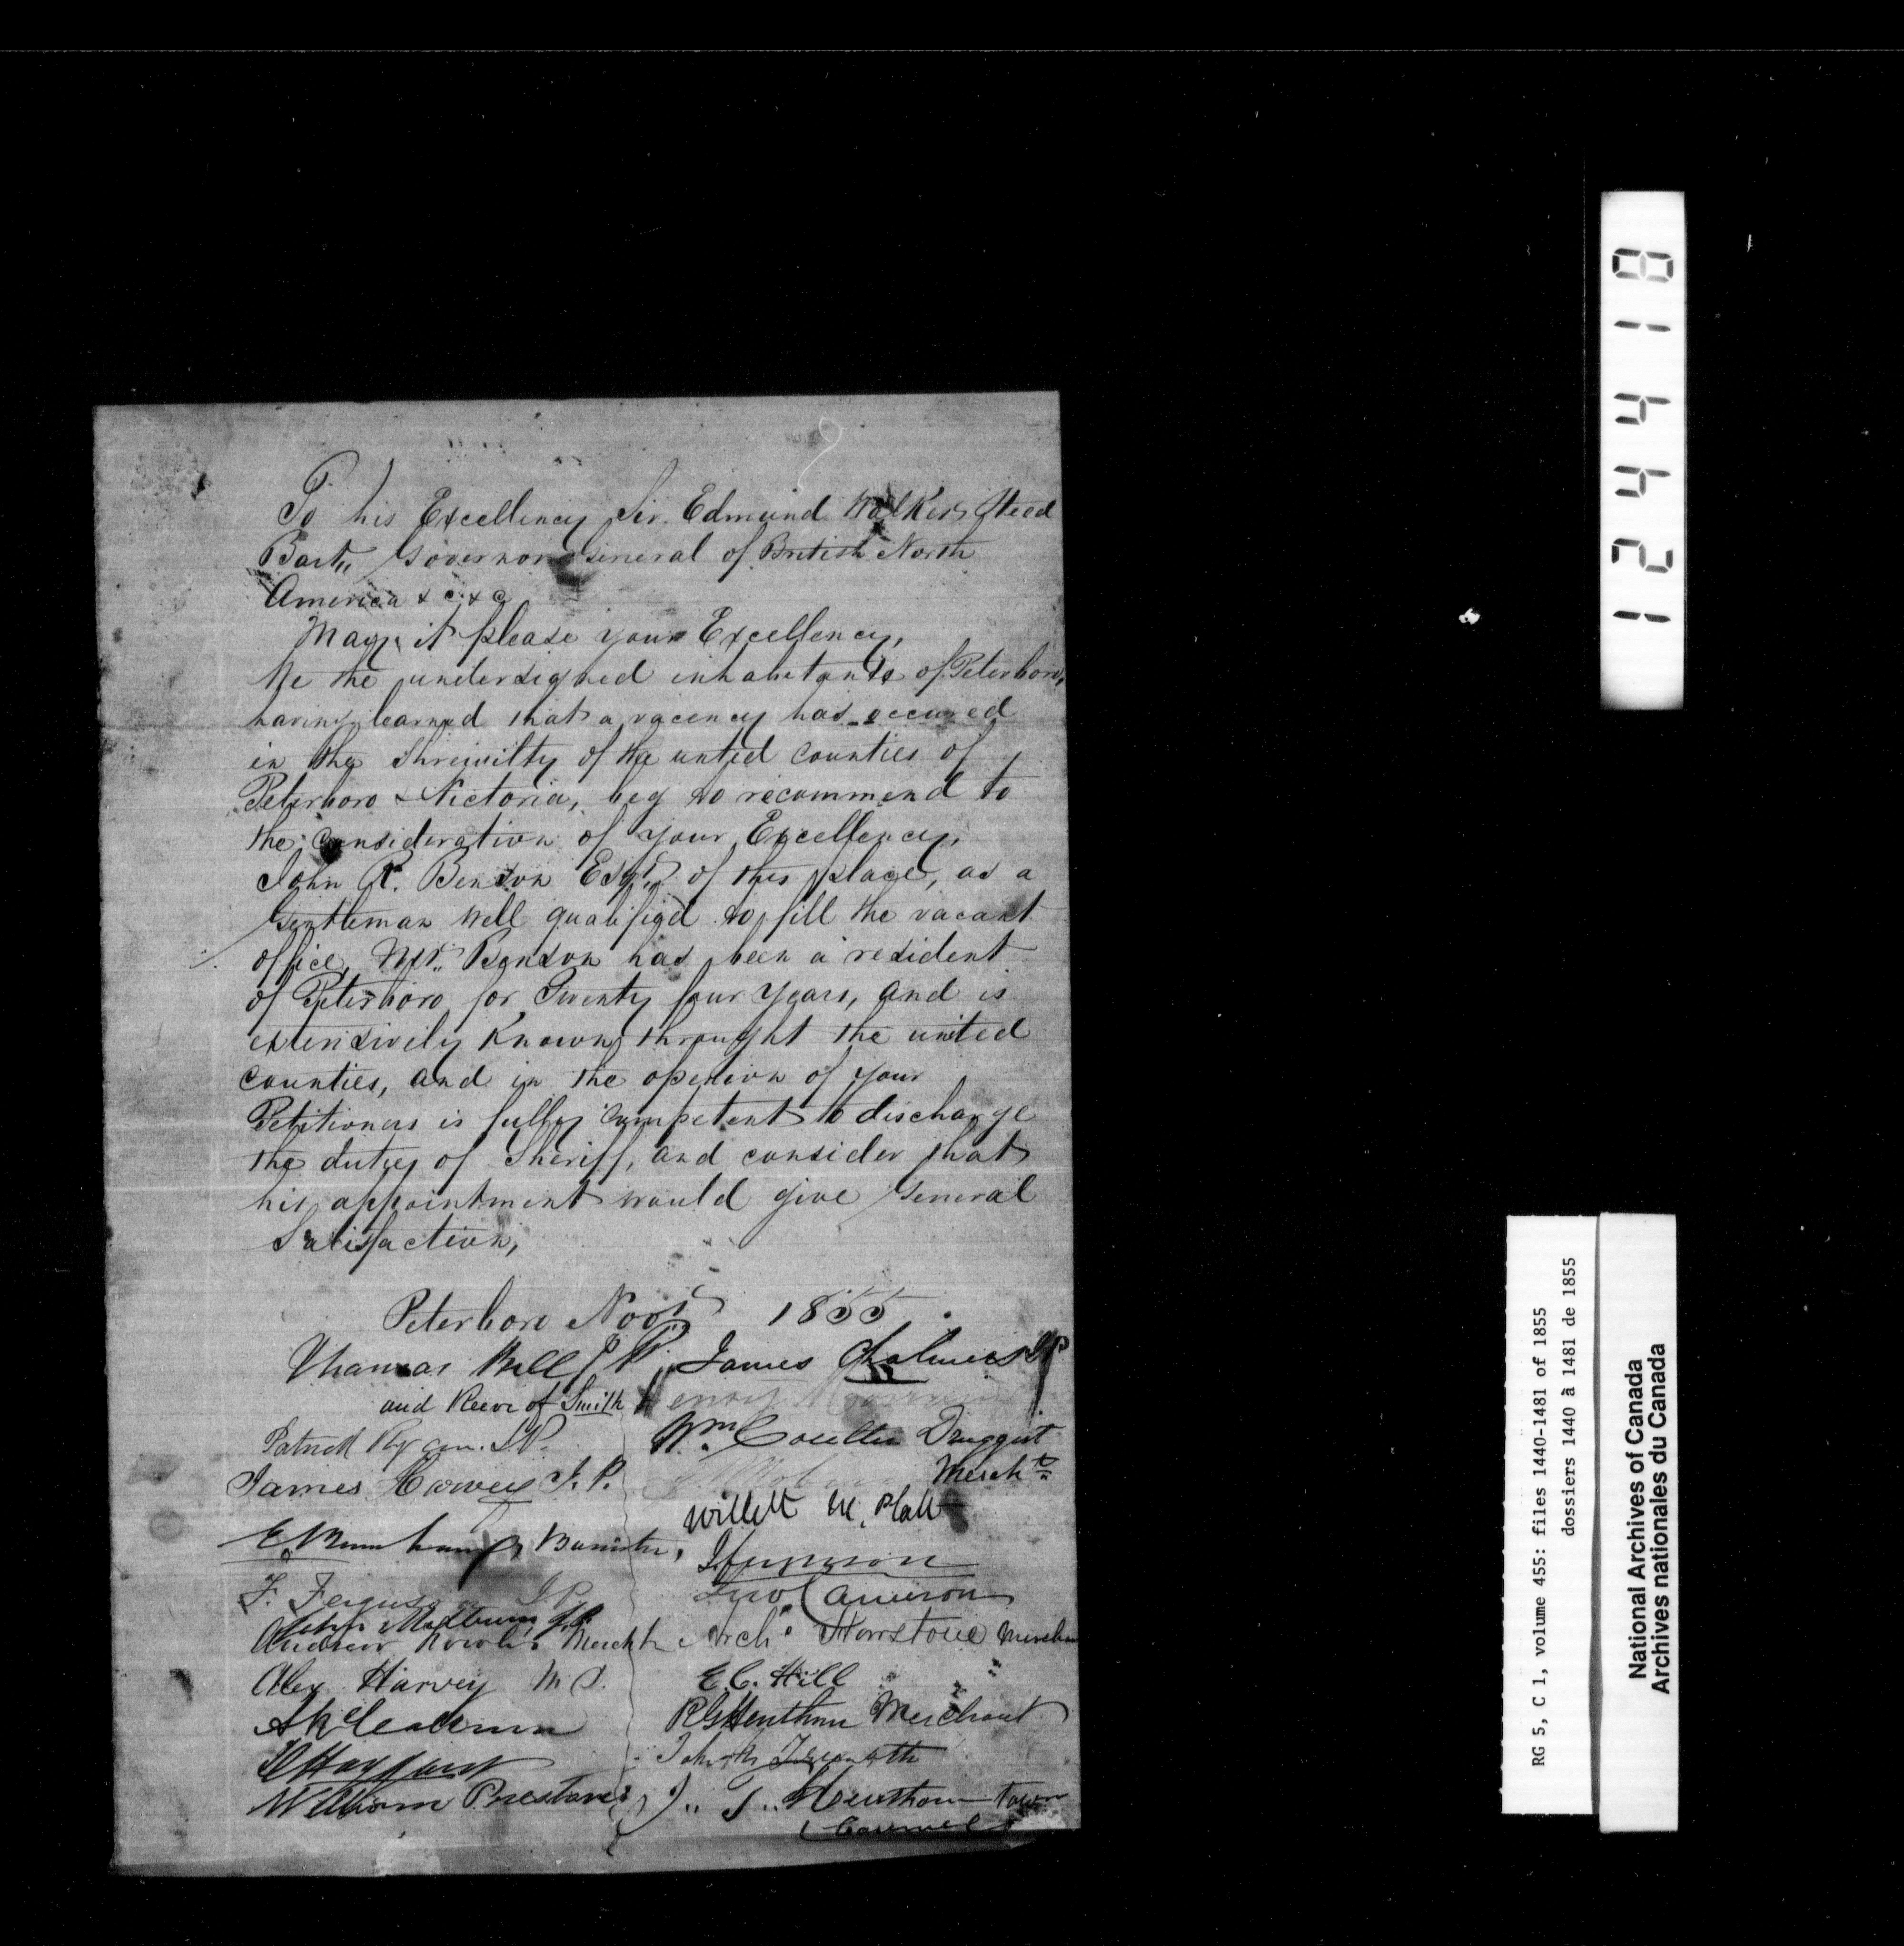 To his Excellency Sir Edmund Walker Head
Bart,, Governor General of British North
America &c &c
May it please your Excellency,
We the undersigned inhabitants of Peterboro,
having learned that a vacency has occured
in the Shreivilty of the united counties of
Peterboro & Victoria, beg to recommend to
the consideration of your Excellency,
John R. Benson Esqr. of this place, as a
Gentleman well qualified to fill the vacant
office, Mr. Benson has been a resident
of Peterboro for Twenty four years, and is
extensively known throught the united
counties, and in the opinion of your
Petitioners is fully competent to discharge
the dutey of Sheriff, and consider that
his appointment would give General
Satisfaction,
Peterboro Novr 1855
Thomas Bell J.P. James Chalmers JP
and Reeve of Smith Henry
Patrick Ryan. J.P. Wm. Coulter Druggist
James Harvey J.P. Mercht
Willett M. Platt
E. Burnham, Barrister,
F. Ferguson J.P. Cameron
John J.P.
Andrew Mercht Archd Merchant
Alex Harvey M D. E. C. Hill
Merchant
William J,, T,, Henthorn Town
Council
1 2 4 4 1 8
RG 5, C 1, volume 455: files 1440-1481 of 1855
dossiers 1440 à 1481 de 1855
National Archives of Canada
Archives nationales du Canada